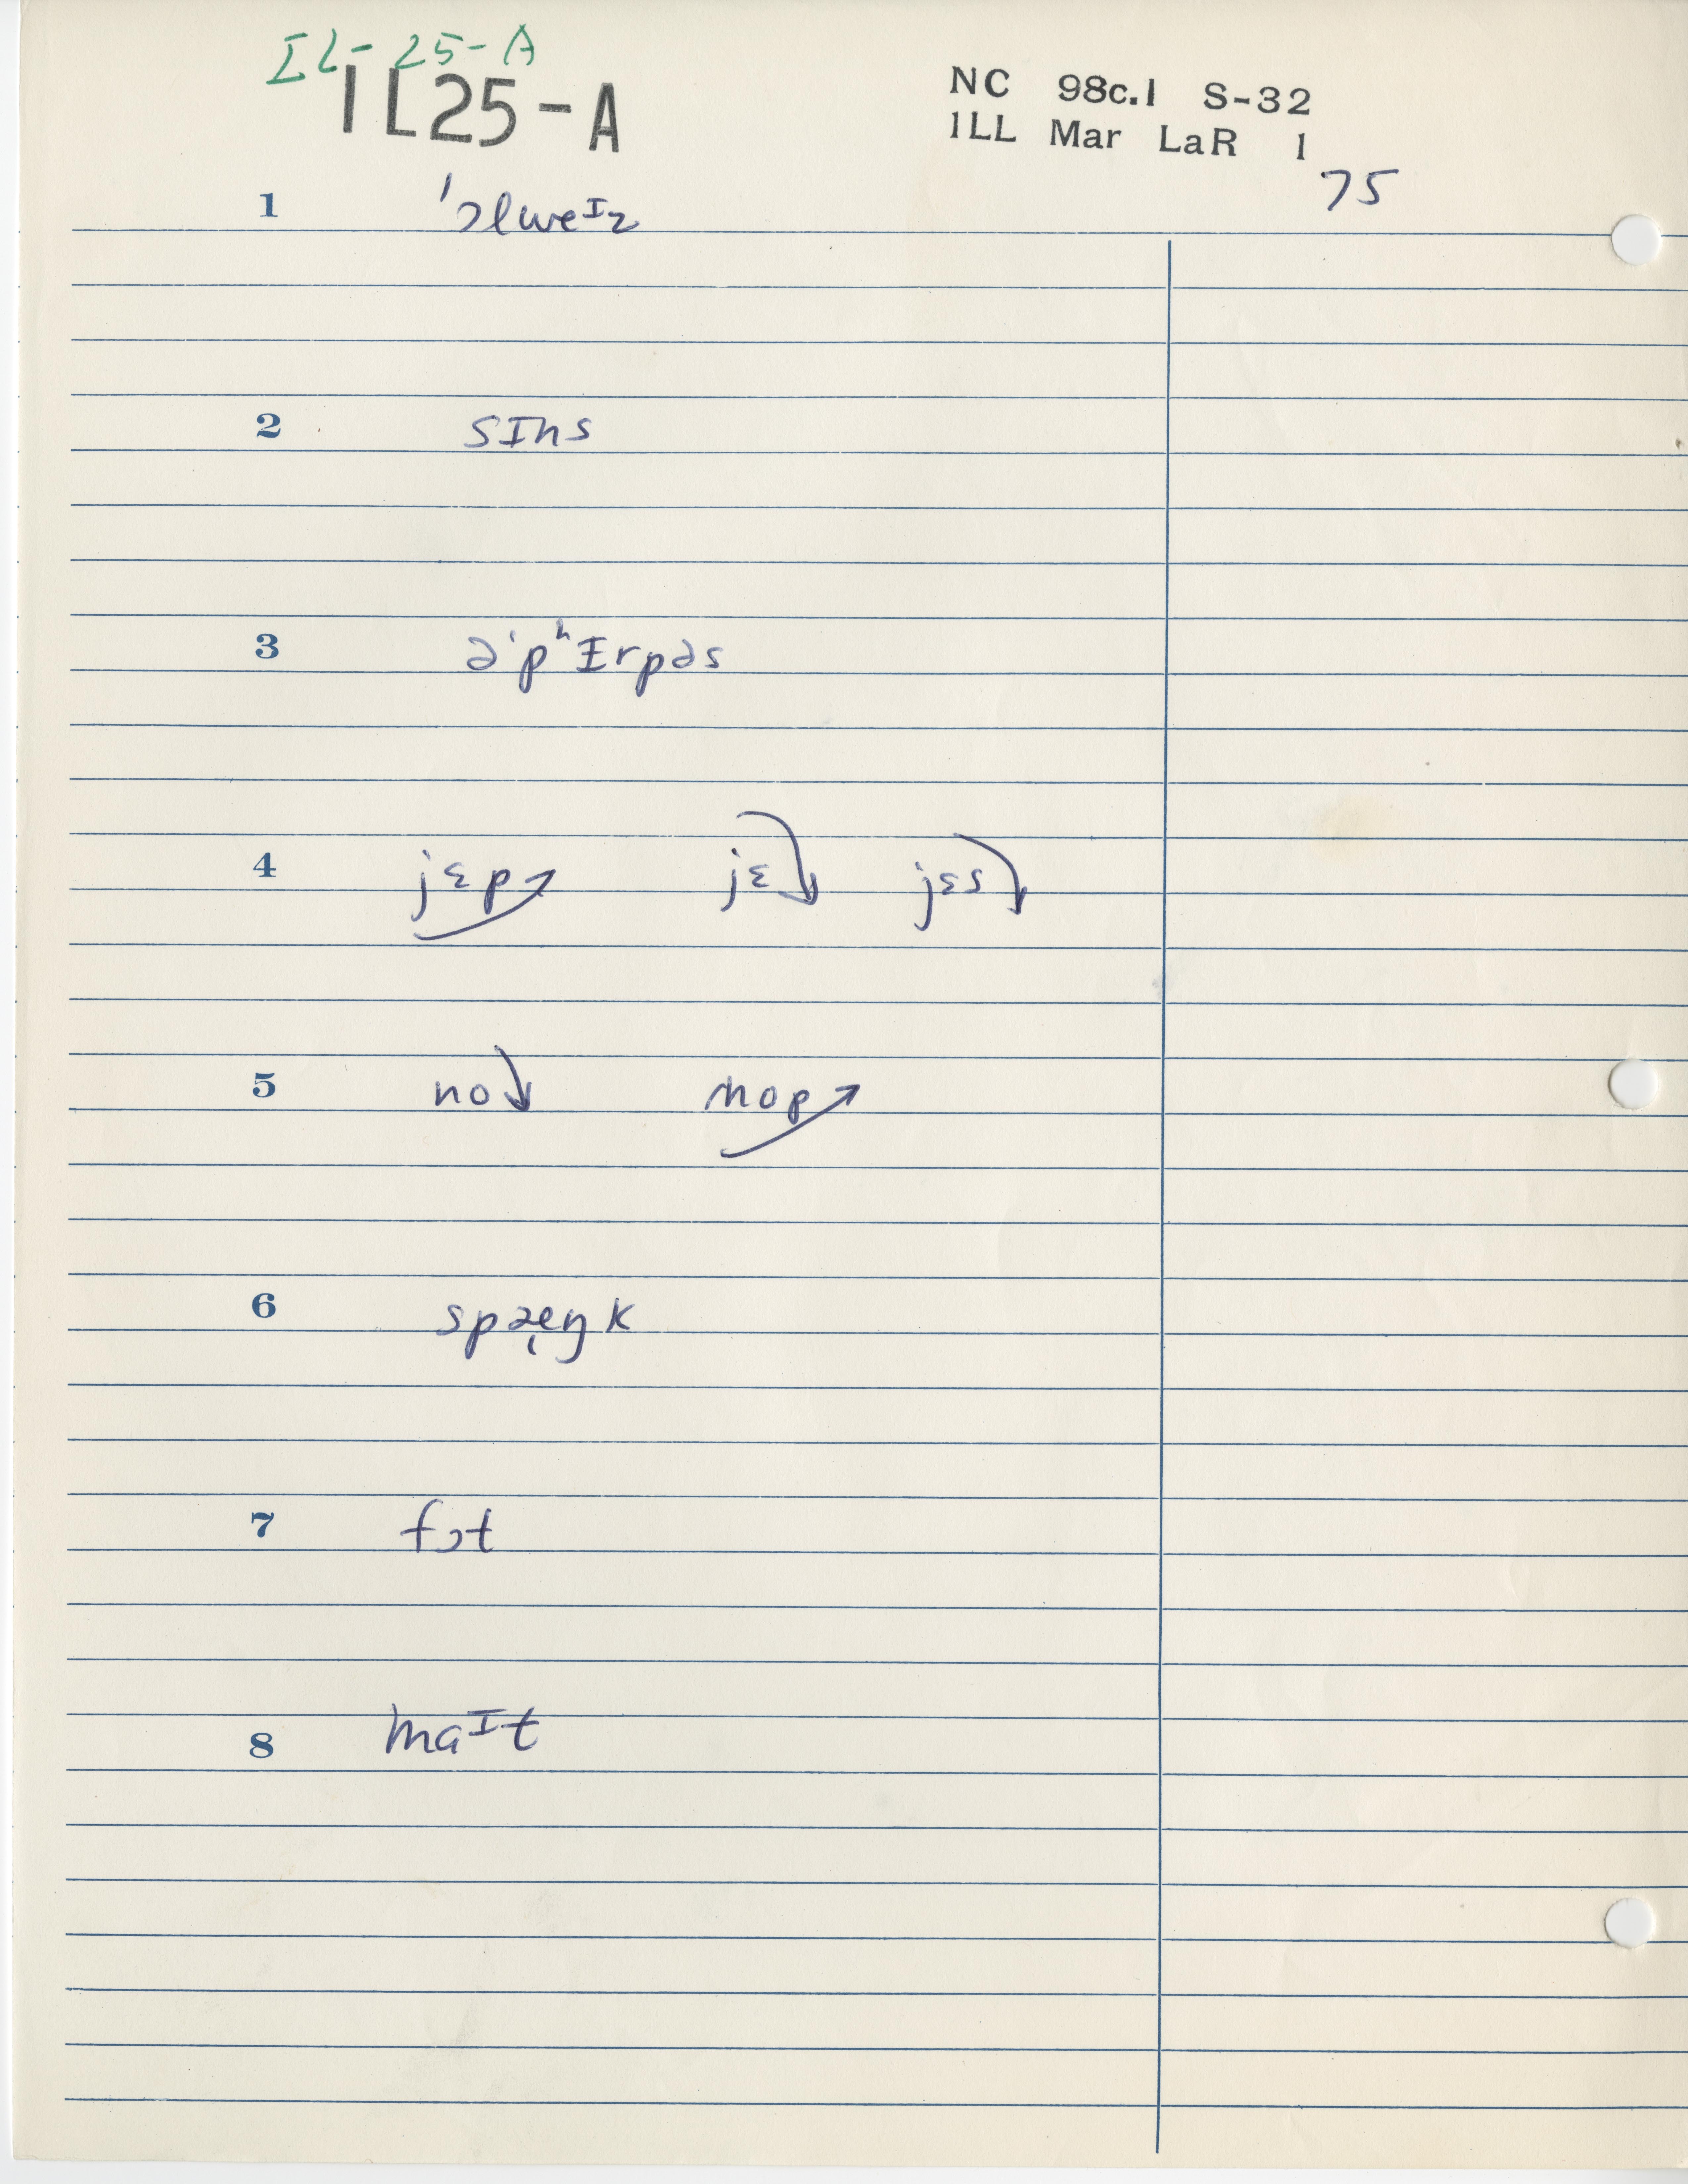 IL-25-A
1L25-A
NC 98c.1 S-32
1LL Mar LaR 1
75
1 ˈɔlweᴵz
2 sɪns
3 əˈpʰɪrpəs
4 jɛp↗ jɛ↘ jɛs↘
5 no↘ nop↗
6 spæ̨ŋk
7 fɔt
8 maᴵt